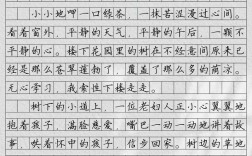 小小地呷一口绿茶，一抹苦涩漫过心间。
看看窗外，平静的天空，平静的午后，一颗不
平静的心。楼下花园里的树在不经意间原来已
经是那么苍翠蓬物了，覆盖了那么多的荫凉。
无心学习，我索性下楼走走。
树下的小道上，一位老妇人正小心翼翼地
抱着孩子，满脸慈爱，嘴巴一动一动地讲着故
事，哄着怀中的孩子，信步回家。树边的草地